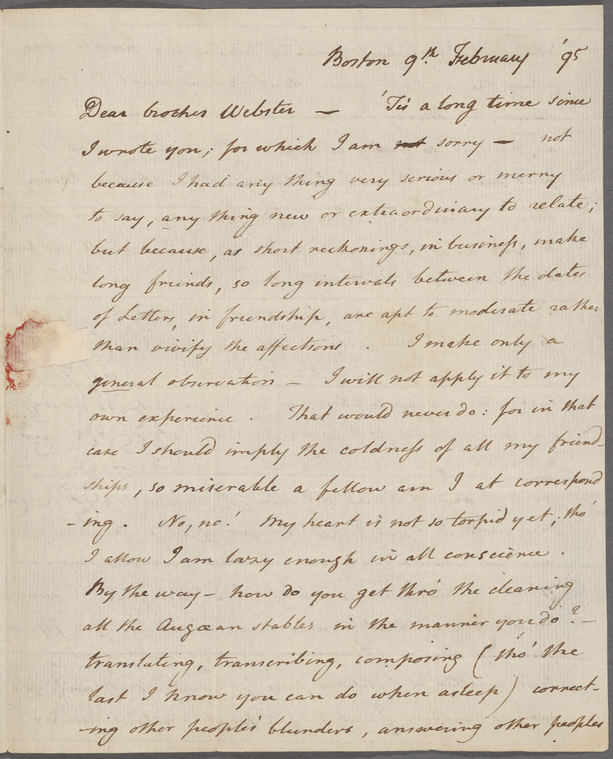 Boston 9th. February '95
Dear brother Webster — 'Tis a long time since
I wrote you; for which I am not sorry — not
because I had any thing very serious or merry
to say, any thing new or extraordinary to relate;
but because, as short reckonings, in business, make
long friends, so long intervals between the dates
of Letters, in friendship, are apt to moderate rather
than vivify the affections. I make only a
general observation — I will not apply it to my
own experience. That would never do: for in that
case I should imply the coldness of all my friend-
ships, so miserable a fellow am I at correspond
-ing. No, no! My heart is not so torpid yet; tho'
I allow I am lazy enough in all conscience.
By the way — how do you get thro' the cleaning
all the Augæan stables in the manner you do? —
translating, transcribing, composing (tho' the
last I know you can do when asleep) correct-
-ing other peoples' blunders, answering other peoples